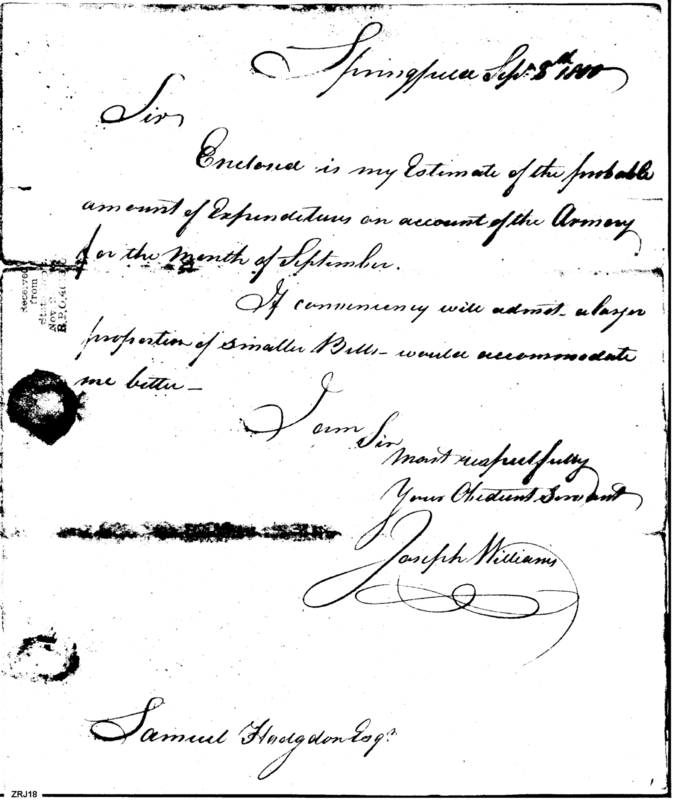 Springfield Sepr. 8th 1800
Sir
Enclosed is my Estimate of the probable
amount of Expenditures on account of the Armory
for the Month of September.
If conveniency will admit a larger
proportion of smaller Bills would accommodate
me better
I am Sir
Most respectfully
Your Obedient Servant
Joseph Williams
Samuel Hodgdon Esqr.
Received
from
Nov 2
ZRJ18